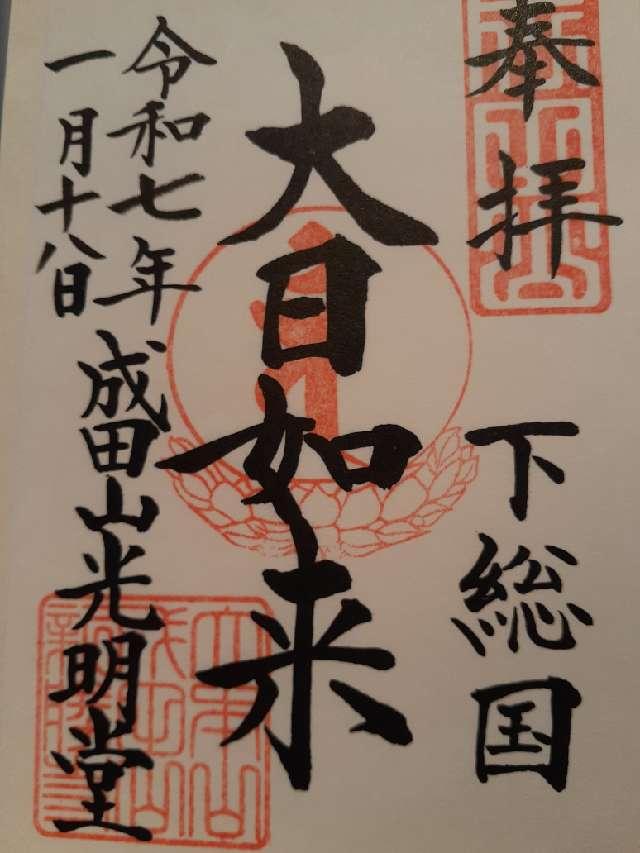 奉拝
下総国
大日如来
令和七年
一月十八日
成田山光明堂